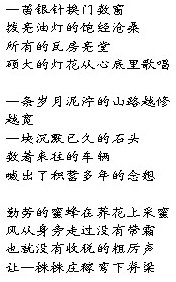 一茜银针换门数窗
拨亮油灯的饱经沧桑
所有的瓦房亮堂
硕大的灯花从心底里歌唱
一条岁月泥泞的山路越修
越宽
一块沉默已久的石头
数着来往的车辆
喊出了积蓄多年的念想
勤劳的蜜蜂在荞花上采蜜
风从身旁走过没有带霜
也就没有收税的粗厉声
让一株株庄稼弯下脊梁